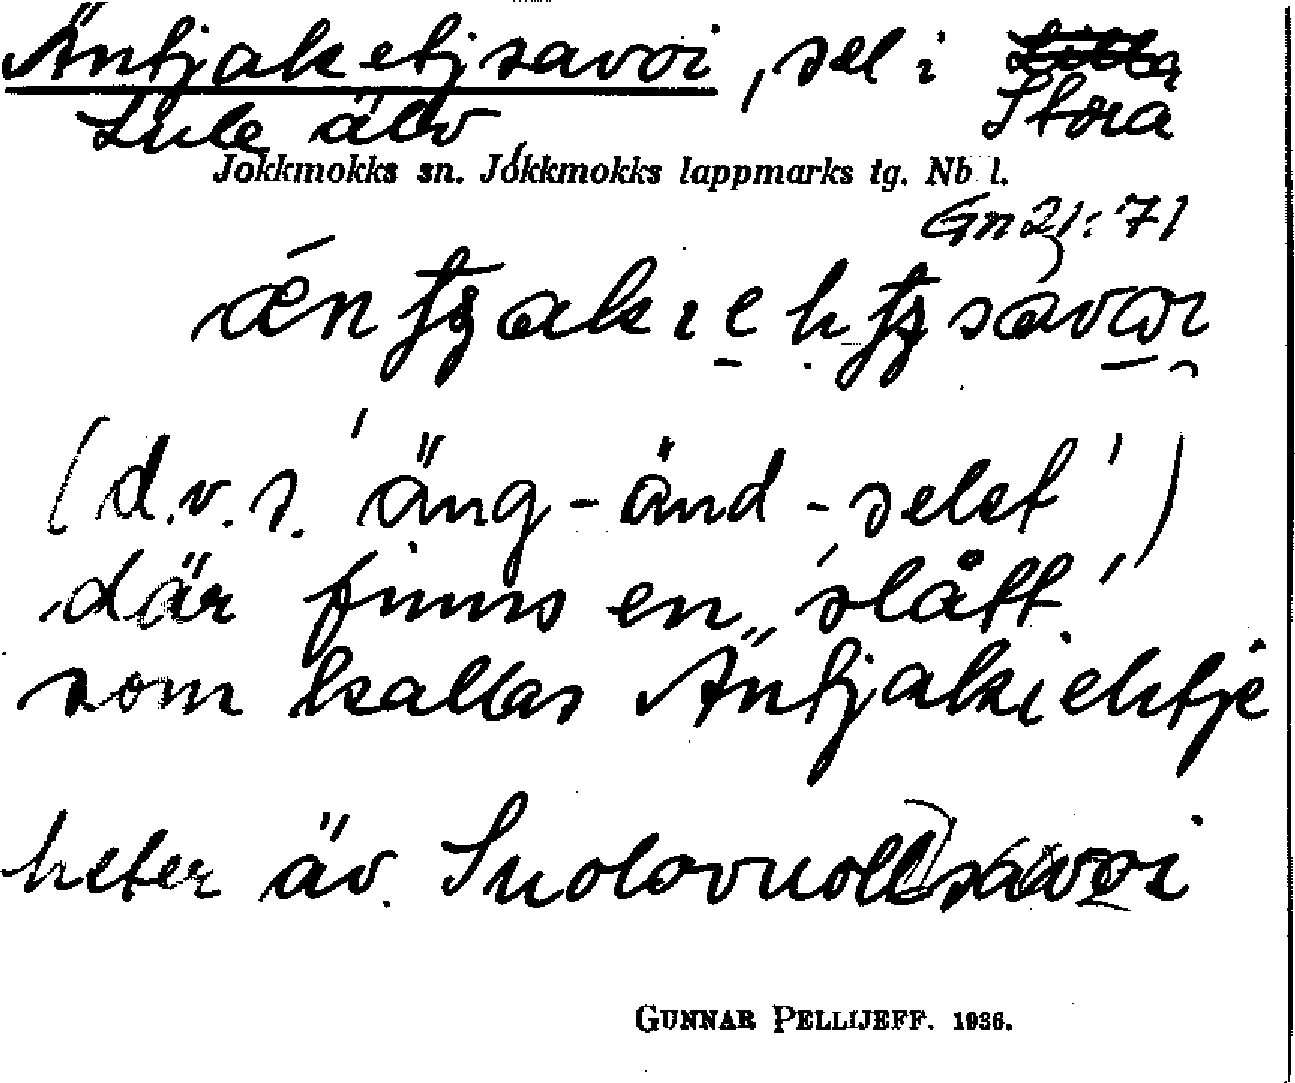 Äntjaketjsavoi, sel i Stora
Lule älv
Jokkmokks sn. Jokkmokks lappmarks tg. Nb l.
Gn 21:71
(d.v.s. 'äng-änd-selet')
där finns en 'slått'
som kallas Äntjakiehtje
heter äv. Suolovuollsavoi
GUNNAR PELLIJEFF. 1936.